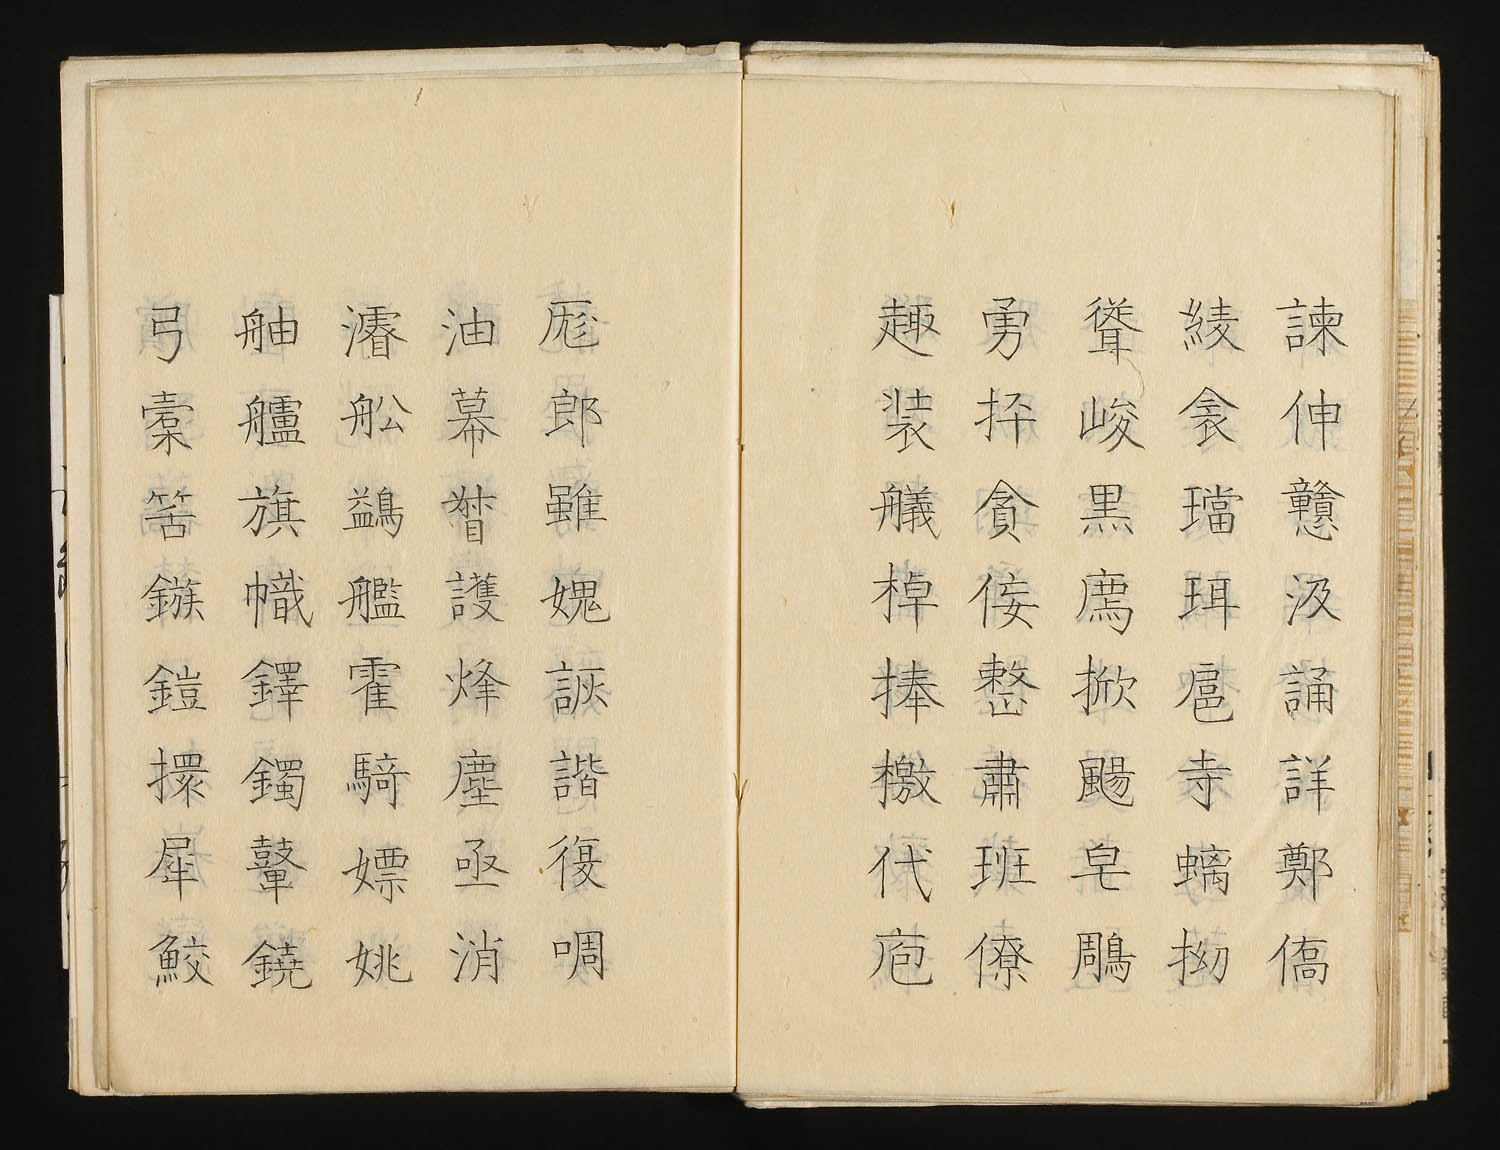 諫伸戇汲誦詳鄭僑
綾衾璫珥扈寺螭拗
聳峻黒廌掀颺皂鵰
勇抨貪佞整肅班僚
趣装艤棹捧檄代庖
厖郎雖媿詼諧復啁
油幕瞀護烽塵亟消
濬舩鷁艦霍騎嫖姚
舳艫旗幟鐸鐲鼙鐃
弓櫜筈鏃鎧擐犀鮫